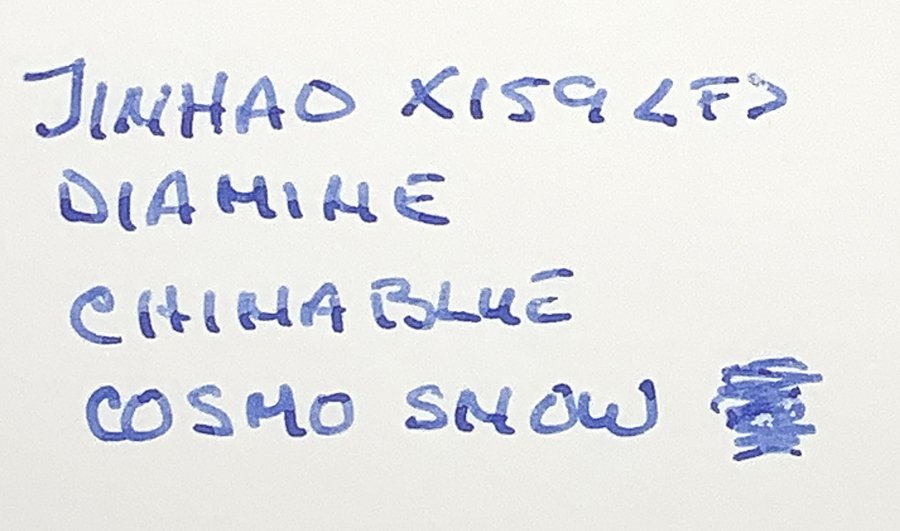 JINHAO X159 <F>
DIAMINE
CHINA BLUE
COSMO SNOW